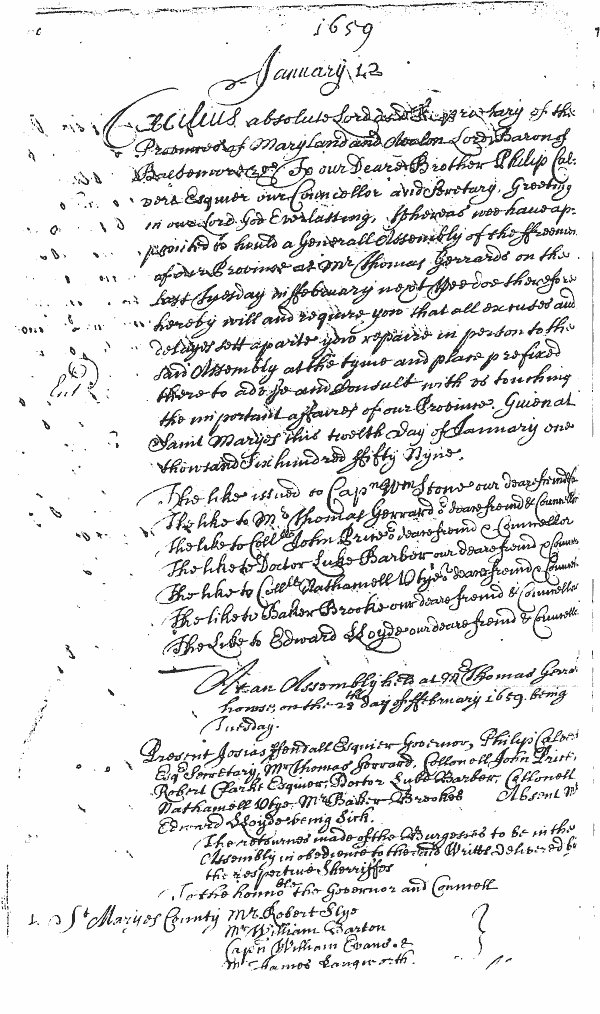 1659
January 12
Cæcilius absolute Lord and Proprietary of the
Provinces of Maryland and Avalon Lord Baron of
Baltemore &c. To our Deare Brother Philip Cal-
vert Esquier our Councellor and Secretary, Greeting
in our Lord God Everlasting, Whereas wee have ap-
pointed to hould a Generall Assembly of the ffreemen
of our Province at Mr Thomas Gerrards on the
Last Tuesday in ffebruary next Wee doe therefore
hereby will and require you that all excuses and
delayes sett aparte you repaire in person to the
said Assembly at the tyme and place prefixed
there to advise and Consult with us touching
the important affaires of our Province. Given at
Saint Maryes this twelth Day of January one
thowsand Six hundred ffifty Nyne.
The like issued to Capn Wm Stone our deare freinds
The like to Mr Thomas Gerrard or deare freind & Councellr
The like to Colll John Price or deare freind & Councellor
The like to Doctor Luke Barber our deare freind & Councr
The like to Colll Nathaniell Utye or deare freind & Councllr
The like to Baker Brooke our deare freind & Councellor
The Like to Edward Lloyde our deare freind & Councellr
At an Assembly held at Mr Thomas Gerra
howse, on the 28th day of ffebruary 1659 being
Tuesday.
Present Josias ffendall Esquier Governor, Philip Calver
Esqr Secretary, Mr Thomas Gerrard, Collonell John Price
Robert Clarke Esquier, Doctor Luke Barber, Collonell
Nathaniell Utye, Mr Baker Brookes Absent Mr
Edward Lloyde being Sick.
The retournes made of the Burgesses to be in the
Assembly in obedience to the said Writts, delivered by
the respective Sherriffes
To the honnoble the Governor and Councell
1. St Maryes County Mr. Robert Slye
Mr William Barton
Capn William Evans &
Mr James Langworth.